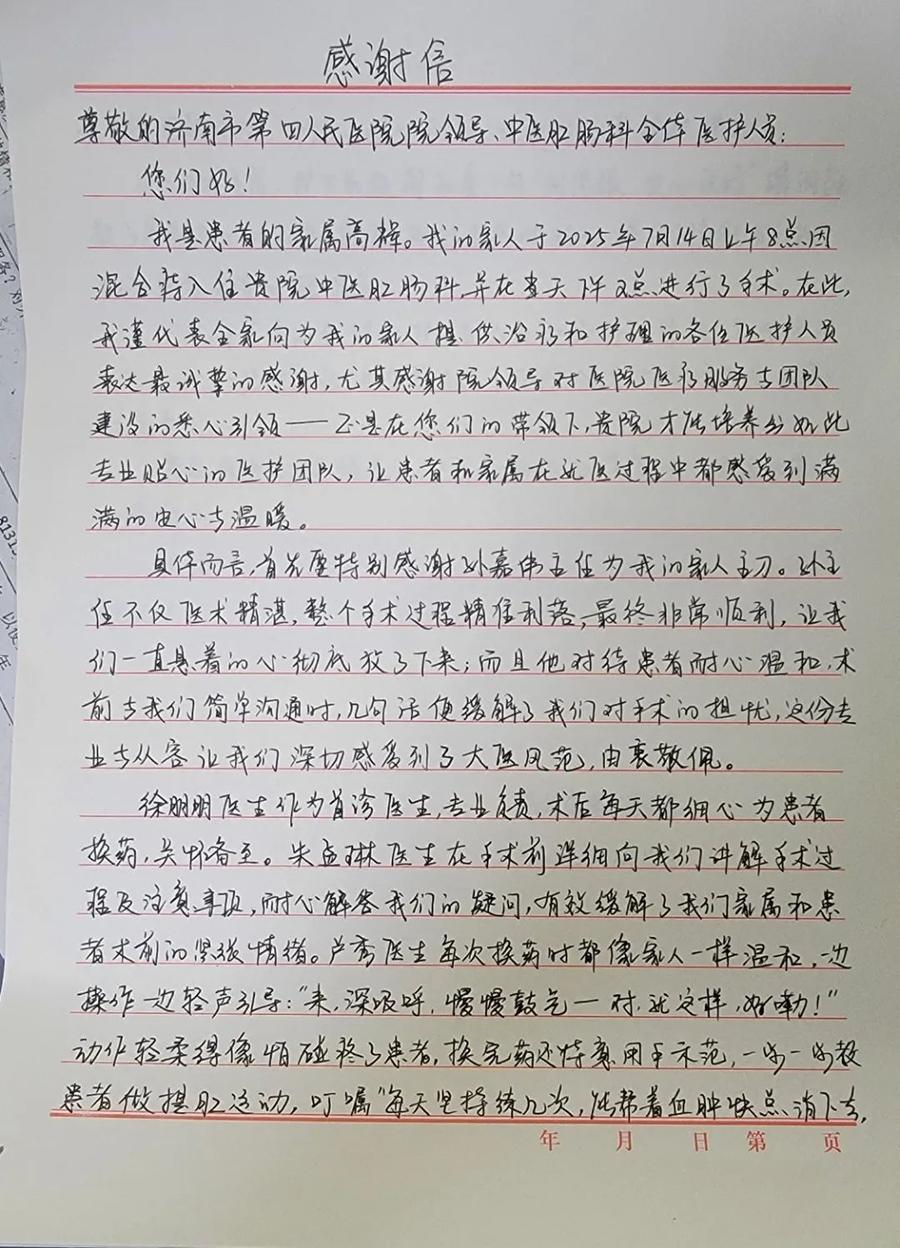 感谢信
尊敬的济南市第四人民医院院领导、中医肛肠科全体医护人员:
您们好!
我是患者的家属高辉。我的家人于2025年7月14日上午8点因
混合痔入住贵院中医肛肠科,并在当天下午2点进行了手术。在此,
我谨代表全家向为我的家人提供治疗和护理的各位医护人员
表达最诚挚的感谢,尤其感谢院领导对医院医疗服务与团队
建设的悉心引领——正是在您们的带领下,贵院才能培养出如此
专业贴心的医护团队,让患者和家属在就医过程中都感受到满
满的安心与温暖。
具体而言,首先要特别感谢孙嘉伟主任为我的家人主刀。孙主
任不仅医术精湛,整个手术过程精准利落,最终非常顺利,让我
们一直悬着的心彻底放了下来;而且他对待患者耐心温和,术
前与我们简单沟通时,几句话便缓解了我们对手术的担忧,这份专
业与从容让我们深切感受到了大医风范,由衷敬佩。
徐朋朋医生作为首诊医生,专业负责,术后每天都细心为患者
换药,关怀备至。朱孟琳医生在手术前详细向我们讲解手术过
程及注意事项,耐心解答我们的疑问,有效缓解了我们家属和患
者术前的紧张情绪。卢鸾医生每次换药时都像家人一样温和,一边
操作一边轻声引导:"来,深呼吸,慢慢鼓气—对,就这样,好嘞!"
动作轻柔得像怕碰疼了患者,换完药还特意用手示范,一步一步教
患者做提肛运动,叮嘱"每天坚持练几次,能帮着血肿快点消下去,
年 月 日 第 页